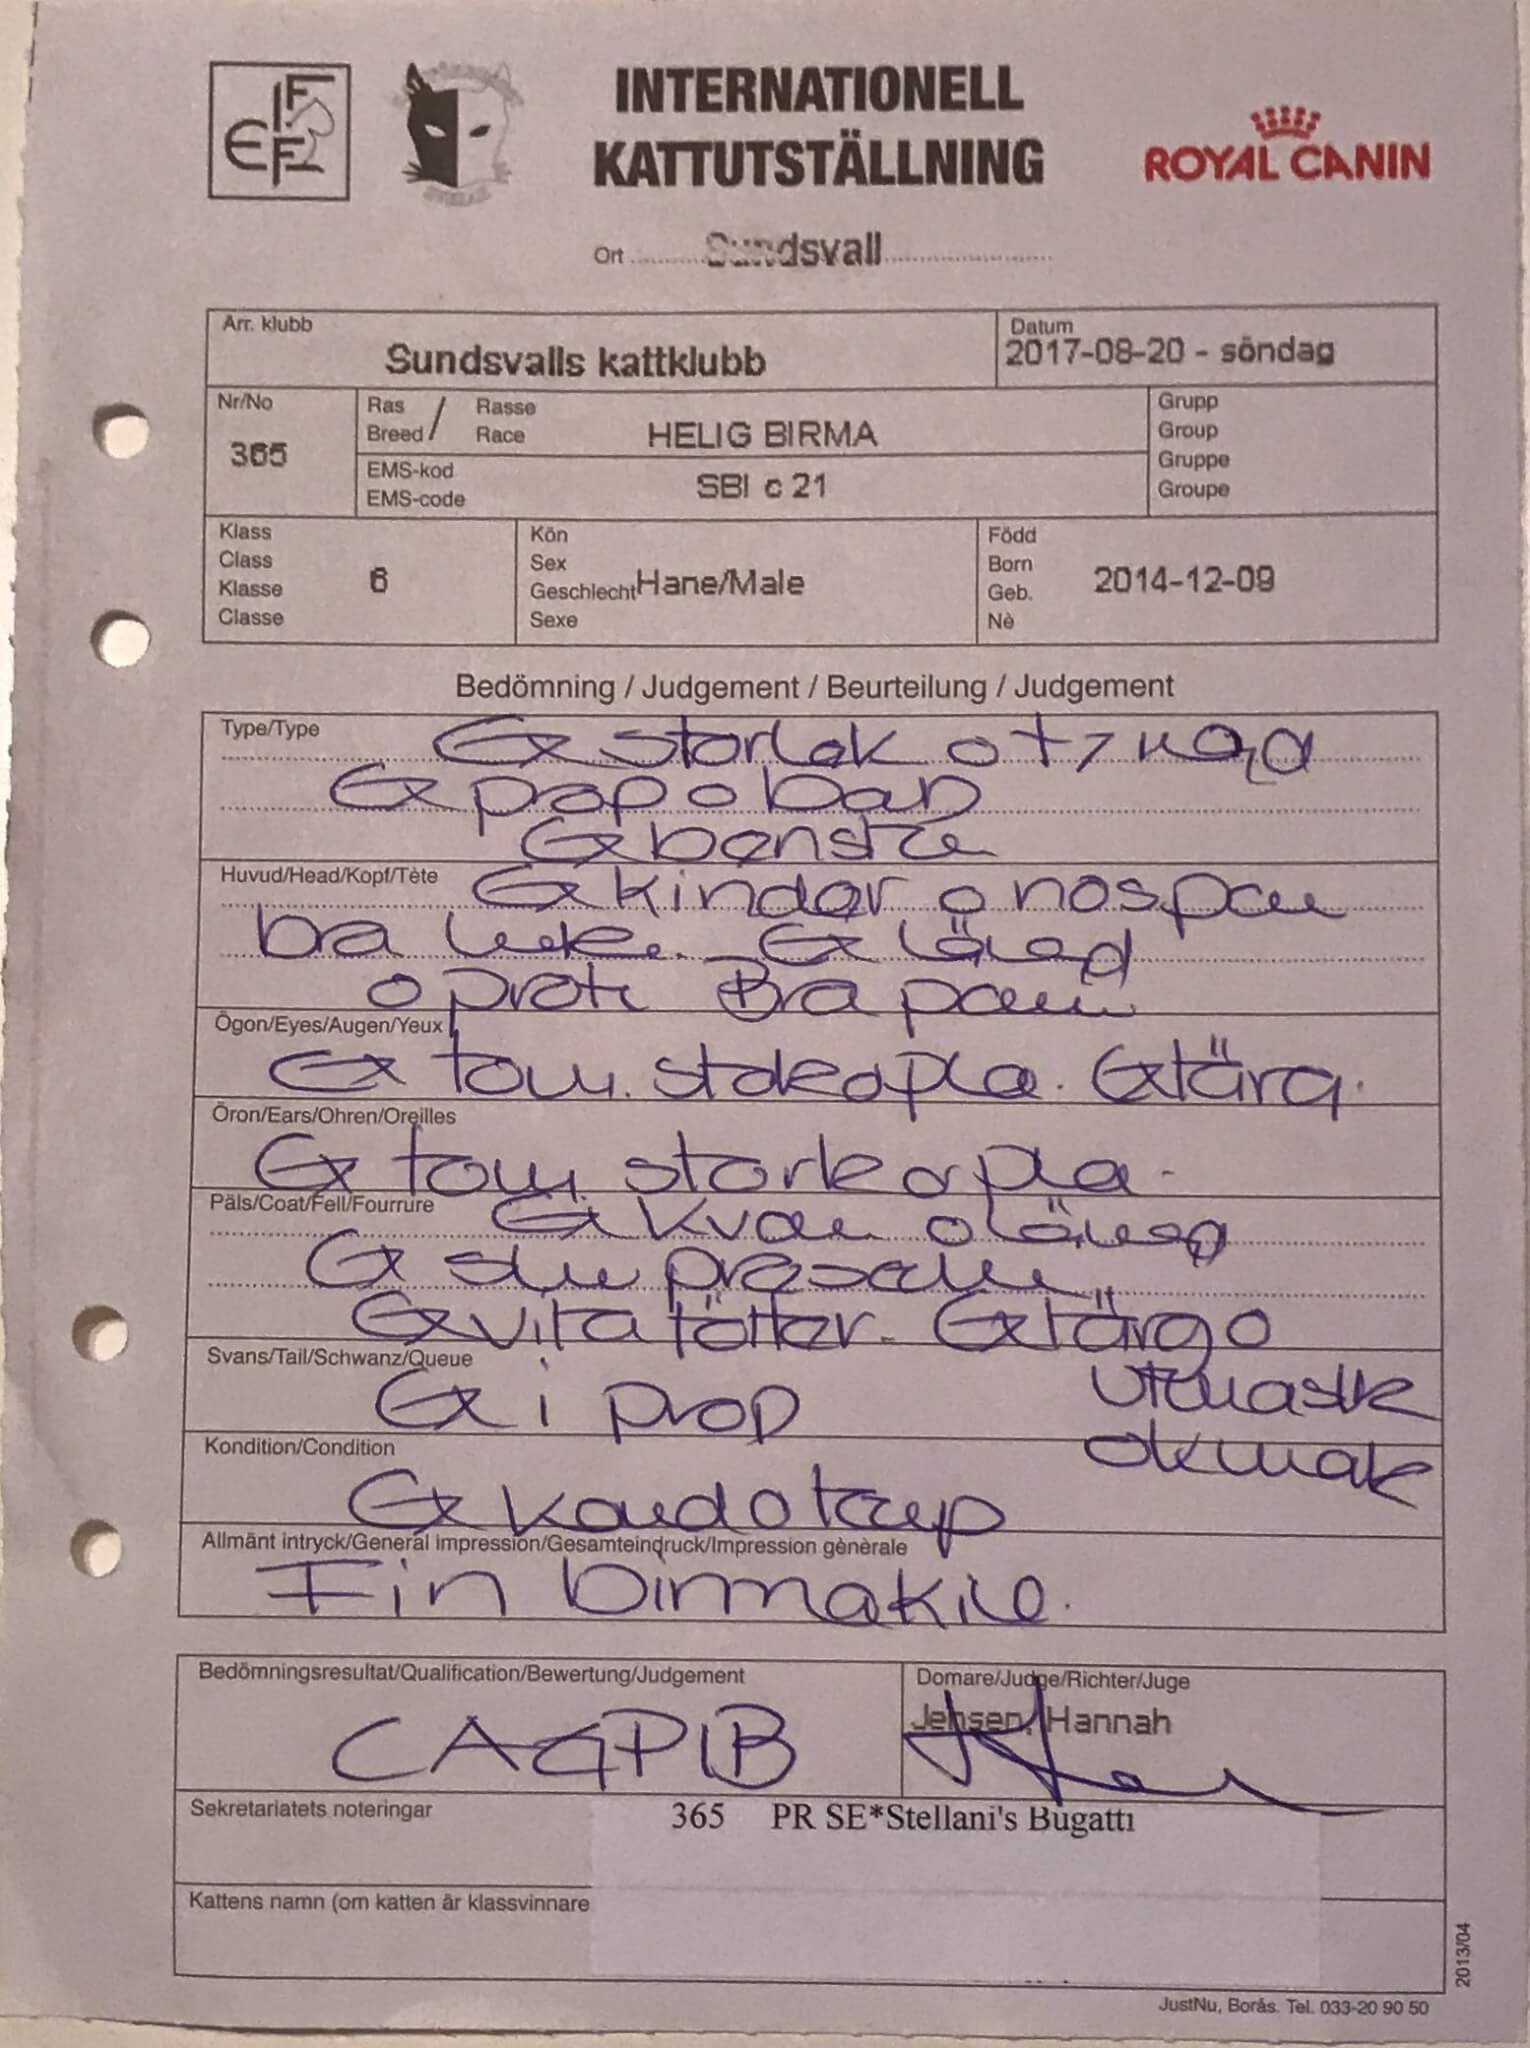 FIFe
INTERNATIONELL
KATTUTSTÄLLNING
ROYAL CANIN
Ort Sundsvall
Arr. klubb
Sundsvalls kattklubb
Datum
2017-08-20 - söndag
Nr/No
365
Ras / Rasse
Breed / Race
HELIG BIRMA
EMS-kod
EMS-code
SBI c 21
Grupp
Group
Gruppe
Groupe
Klass
Class
Klasse
Classe
6
Kön
Sex
Geschlecht
Sexe
Hane/Male
Född
Born
Geb.
Nè
2014-12-09
Bedömning / Judgement / Beurteilung / Judgement
Type/Type
Ex storlek o tyngd
Ex prop o ben
Ex benstr
Huvud/Head/Kopf/Tète
Ex kinder o nos
bra Ex längd
o profil Bra
Ögon/Eyes/Augen/Yeux
Ex form. storlek o pla. Ex färg.
Öron/Ears/Ohren/Oreilles
Ex form storlek o pla.
Päls/Coat/Fell/Fourrure
Ex kval o längd
Ex
Ex vita fötter. Ex färg o
utmärkt
Svans/Tail/Schwanz/Queue
Ex i prop
Kondition/Condition
Ex kond o temp
Allmänt intryck/General Impression/Gesamteindruck/Impression gènèrale
Fin birmakille.
Bedömningsresultat/Qualification/Bewertung/Judgement
CAGPIB
Domare/Judge/Richter/Juge
Jensen, Hannah
Sekretariatets noteringar
365 PR SE*Stellani's Bugatti
Kattens namn (om katten är klassvinnare
2013/04
JustNu, Borås. Tel. 033-20 90 50